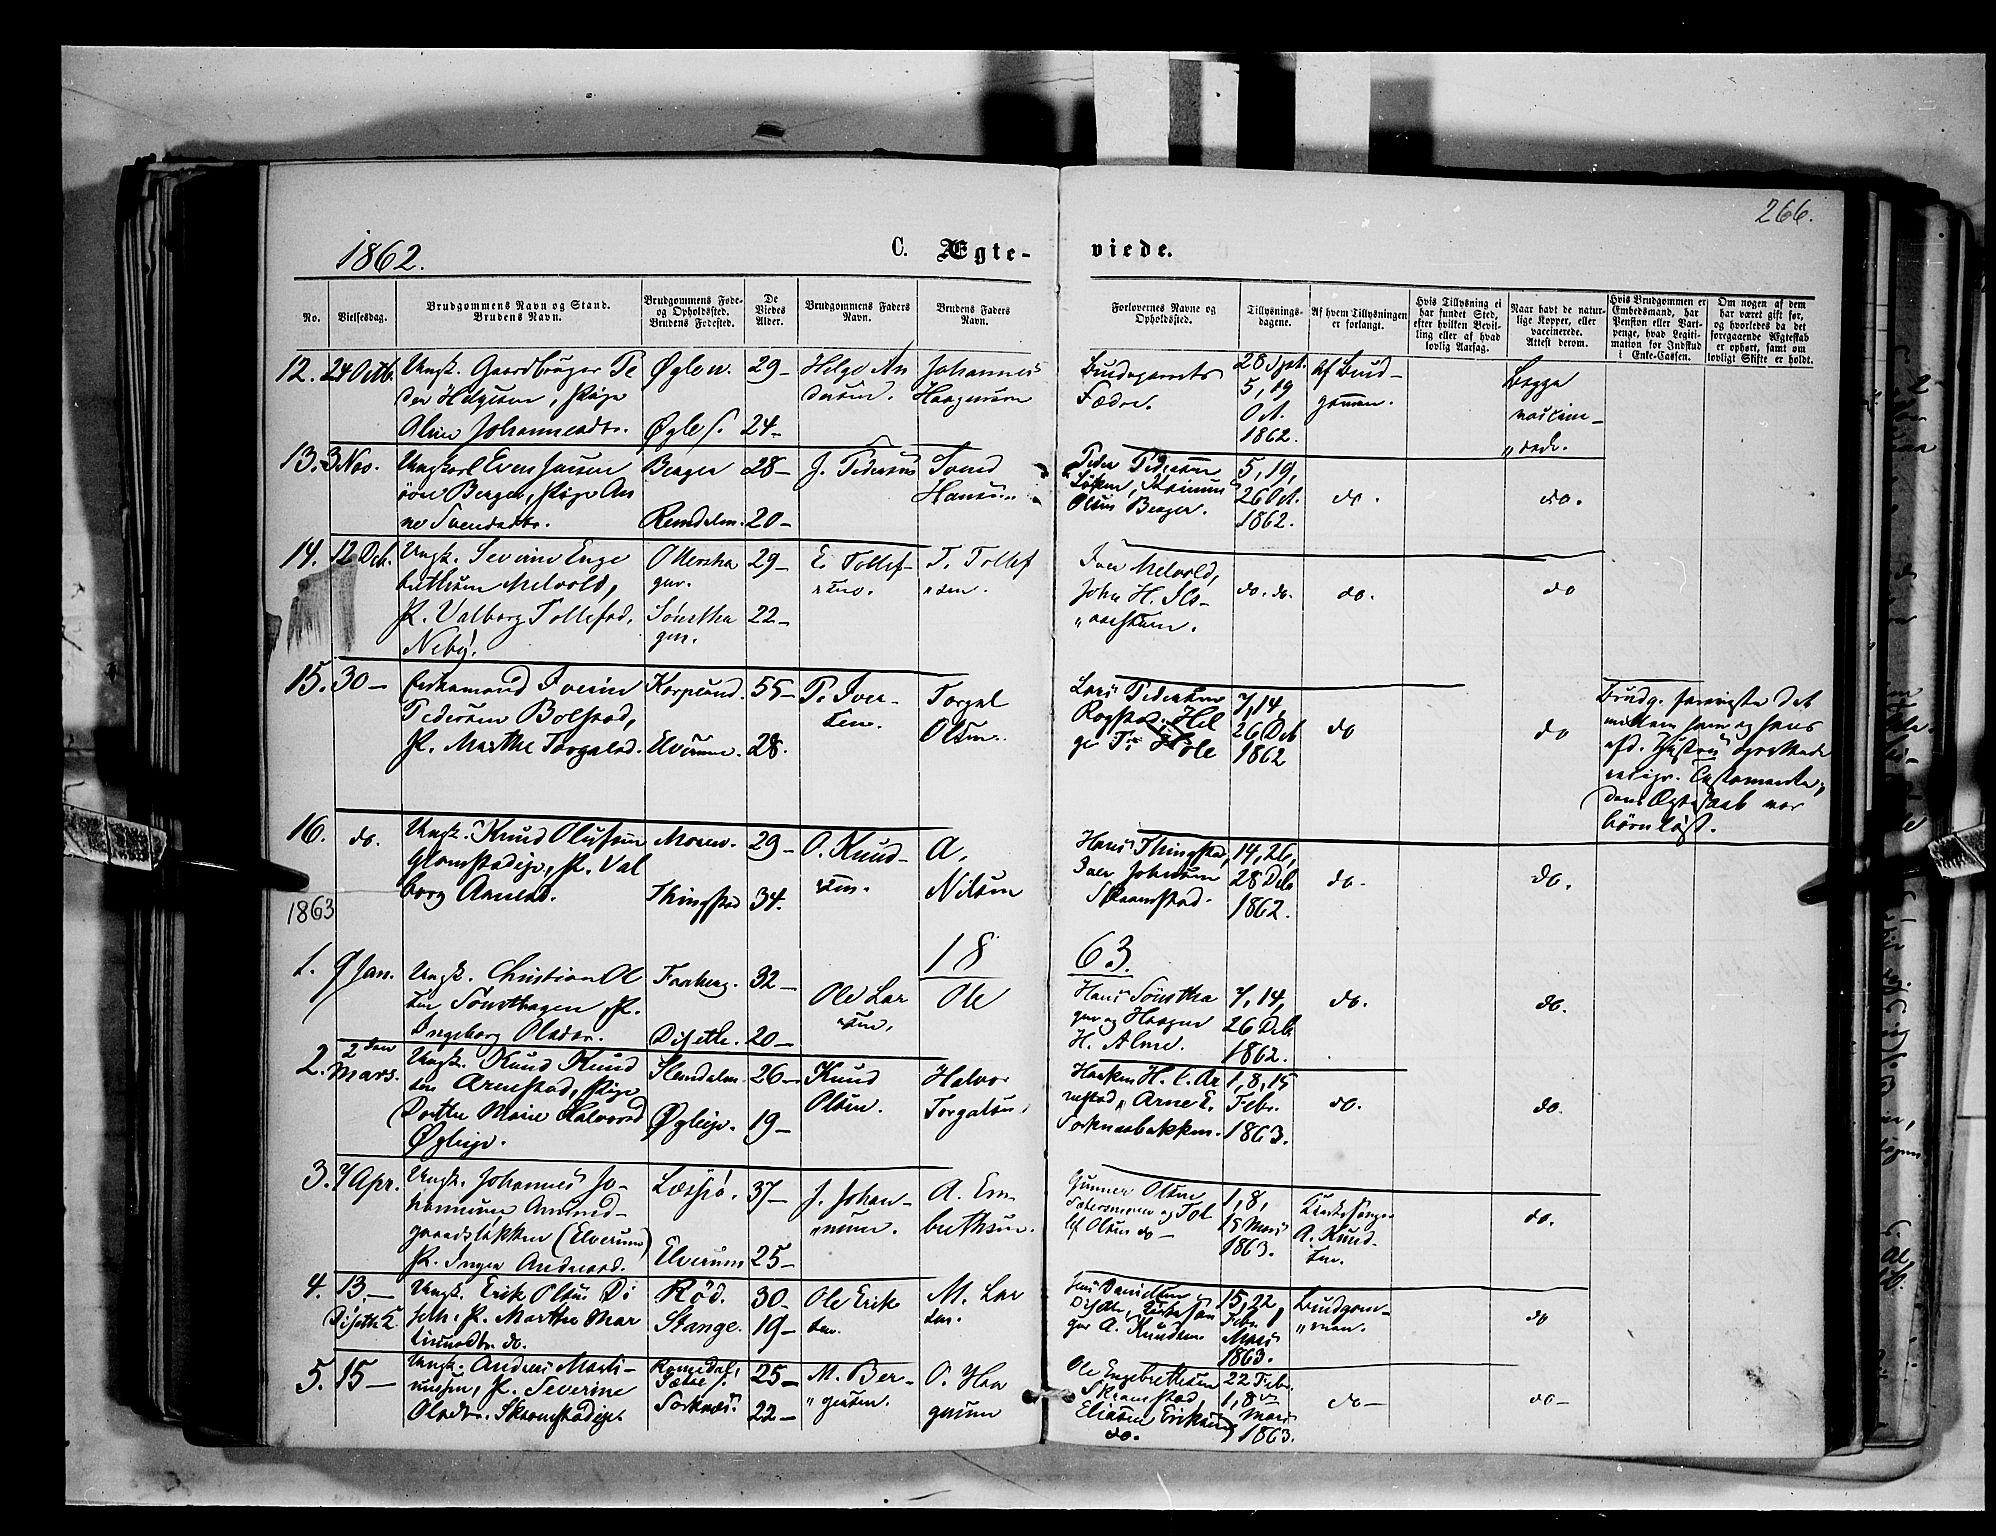 266.
1862.
C. Ægte-
viede.
No.
Vielsesdag.
Brudgommens Navn og Stand.
Brudens Navn.
Brudgommens Føde-
og Opholdssted.
Brudens Fødested.
De
Viedes
Alder.
Brudgommens Faders
Navn.
Brudens Faders
Navn.
Forlovernes Navne og
Opholdssted.
Tillysnings-
dagene.
Af hvem Tillysningen
er forlangt.
Hvis Tillysning ei
har fundet Sted,
efter hvilken Bevil-
ling eller af hvad
lovlig Aarsag.
Naar havt de natur-
lige Kopper, eller
vaccinerede.
Attest derom.
Hvis Brudgommen er
Embedsmand, har
Pension eller Vart-
penge, hvad Legiti-
mation for Indskud
i Enke-Cassen.
Om nogen af dem
har været gift før,
og hvorledes da det
foregaaende Ægteskab
er ophørt, samt om
lovligt Skifte er holdt.
12. 24 Octb. Ungk. Gaardbruger Pe
der Helgesen, Pige
Oline Johannesdtr.
Øglen.
Øgle
29-
24-
Helge An
dersen.
Johannes
Haagensen
Brudeparrets
Fædre.
28 Sept.
5, 19
Oct.
1862.
Af Brud-
gommen.
Begge
vaccine-
"rede.
13. 3 Nov. Ungkarl Even Jensen
Berger, Pige An
ne Svendsdtr.
Berger
Remdalen.
28-
20-
J. Pedersen
Svend
Hansen
Peder Pedersen
Løken,
Olsen Berger.
5, 19,
26 Oct.
1862.
do.
do.
14. 12 Dcb. Ungk. Severin Enge
brethsen Melvold,
P. Valborg Tollefsd.
Neby.
Ottersha
gen.
Sønstha
gen.
29-
22-
E. Tollef-
sen.
T. Tollef
sen.
Iver Melvold,
John H.
do. do.
do.
do
15. 30- Enkemand Iverin
Pedersen Bolstad,
P. Marthe Torgalsd.
Korpsund.
Elverum.
55-
28.
P. Iver-
sen.
Torgal
Olsen.
Lars Pedersen
Rogstad. Hel
ge T. Hole
7, 14,
26 Dcb
1862
do
do
Brudg. foreviste det
mellem ham og hans
afd. Hustru oprettede
Testamente,
dens Ægteskab var
børnløst.
16. do. Ungk. Knud Olufsen
Glomstadeje, P. Val
borg Arnesd.
Moren.
Thingstad
29-
34.
O. Knud-
sen.
A.
Nilsen
Hans Thingstad,
Iver Johnsen
Skramstad.
14, 26,
28 Dcb
1862.
do.
do.
1863
18 63.
1. 9 Jan. Ungk. Christian Ol
sen Sønsthagen, P.
Ingeborg Olsdtr.
Faaberg.
Disethe.
32-
20-
Ole Lar
sen.
Ole
Hans Sønstha
gen og Haagen
H. Alme.
7, 14,
26 Dcb
1862.
do.
do.
2. 2den
Mars. Ungk. Knud Knud
sen Arnestad, Pige
Dorthe Marie Halvorsd
Øgleeje.
Slemdalen.
Øgleeje.
26-
19-
Knud
Olsen.
Halvor
Torgalsen.
Haaken H. C. Ar
nestad, Arne E.
Torknæsbakken.
1, 8, 15
Febr.
1863.
do.
do.
3. 7 Apr. Ungk. Johannes Jo-
hannesen Amund-
gaardsløkken (Elverum)
P. Inger Andreasd.
Læssjø.
Elverum
37-
25-
J. Johan-
nesen.
A. Em
brethsen.
Gunner Olsen
Sætersmoen og Tol
lef Olsen do-
1, 8,
15 Mars
1863.
Kirkesanger
A. Knud-
sen.
do.
4. 13.-
Diseth K. Ungk. Erik Olsen Di
seth, P. Marthe Mar
tinusdtr. do.
Rød.
Stange.
30-
19-
Ole Erik
sen.
M. Lar
sen.
Jens Danielsen
Diseth, Kirkesan
ger A. Knudsen.
15, 22
Febr. 1
Mars
1863.
Brudgom-
"men.
do
5. 15- Ungk. Andreas Marti-
nussen, P. Severine
Olsdtr. Skramstadeje.
Romedal,
Torknæs.
25-
22-
M. Ber-
"gesen.
O. Haa
gensen
Ole Engebrethsen
Skramstad,
Eliasen Eriksen
do.
22 Febr.
1, 8
Mars
1863.
do-
do-